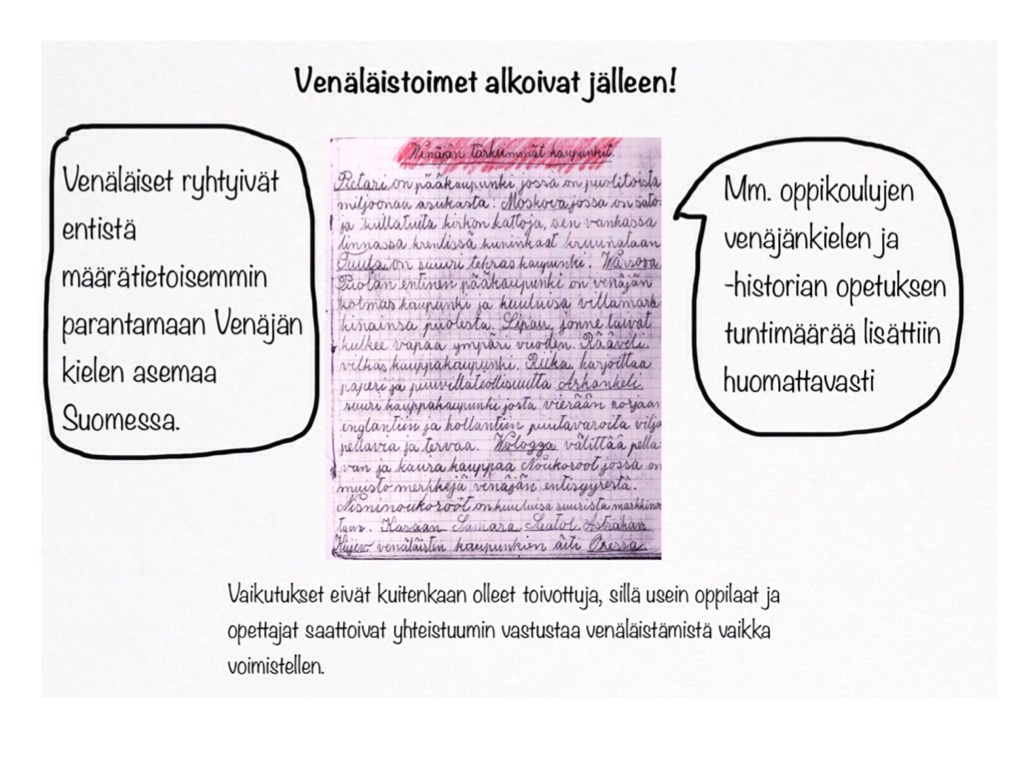 Venäläistoimet alkoivat jälleen!
Venäläiset ryhtyivät
entistä
määrätietoisemmin
parantamaan Venäjän
kielen asemaa
Suomessa.
Wenäjän tärkeimmät kaupunkit.
Pietari on pääkaupunki jossa on puolitoista
miljoonaa asukasta. Moskova jossa on sato-
ja kullatuita kirkon kattoja, sen vankassa
linnassa kremlissä kuninkaat kruunataan
Tuula on suuri tehras kaupunki. Warsova
Puolan entinen pääkaupunki on venäjän
kolmas kaupunki ja kuuluisa villamark-
kinainsa puolesta. Lipau, jonne laivat
kulkee vapaa ympäri vuoden. Rääveli
vilkas kauppakaupunki. Riika harjoittaa
paperi ja puuvillateollisuutta Arhankeli
suuri kauppakaupunki josta vierään norjaan
englantiin ja hollantiin puutavaroita vilja
pellavia ja tervaa. Wologga välittää pella-
van ja kaura kauppaa Noukoroot jossa on
muisto merkkejä venäjän entisyyrestä.
Nisninoukoroot on kuuluisa suurista markkinois-
taan. Kasaan Samara Saatol Astrahan
Kiijew venäläisten kaupunkien äiti Oressa
Mm. oppikoulujen
venäjänkielen ja
-historian opetuksen
tuntimäärää lisättiin
huomattavasti
Vaikutukset eivät kuitenkaan olleet toivottuja, sillä usein oppilaat ja
opettajat saattoivat yhteistuumin vastustaa venäläistämistä vaikka
voimistellen.